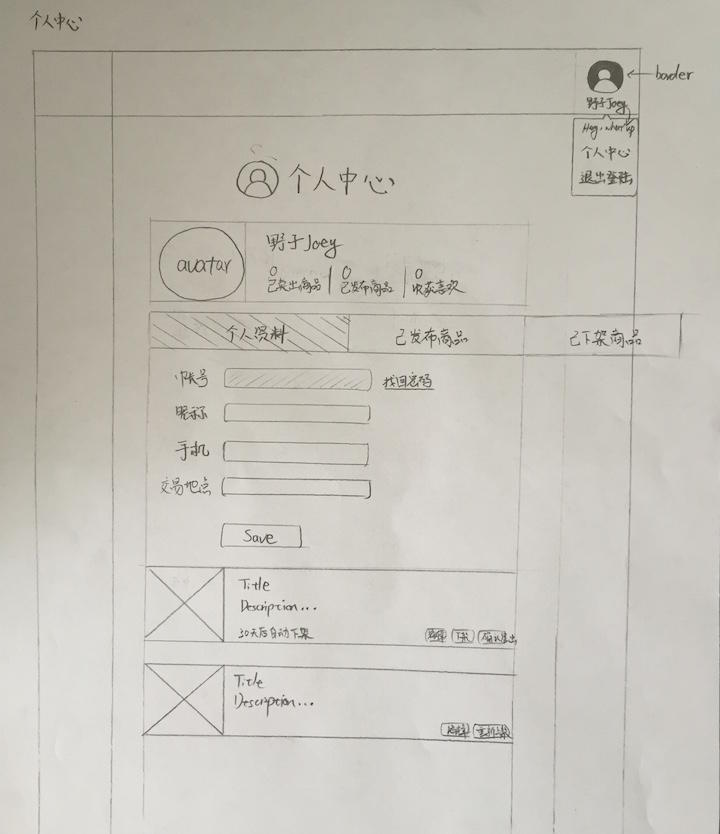 个人中心
border
野子Joey
个人中心
退出登陆
个人中心
avatar
野子Joey
0 0 0
已卖出商品 已发布商品 收获喜欢
个人资料 已发布商品 已下架商品
帐号 找回密码
昵称
手机
交易地点
Save
Title
Description...
30天后自动下架
下架
Title
Description...